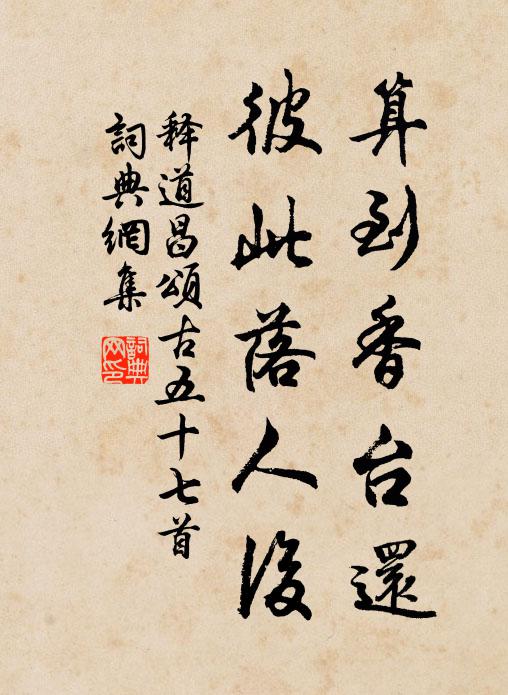 算到香台還
彼此落人後
释道昌頌古五十七首
詞典網集
詞典網印